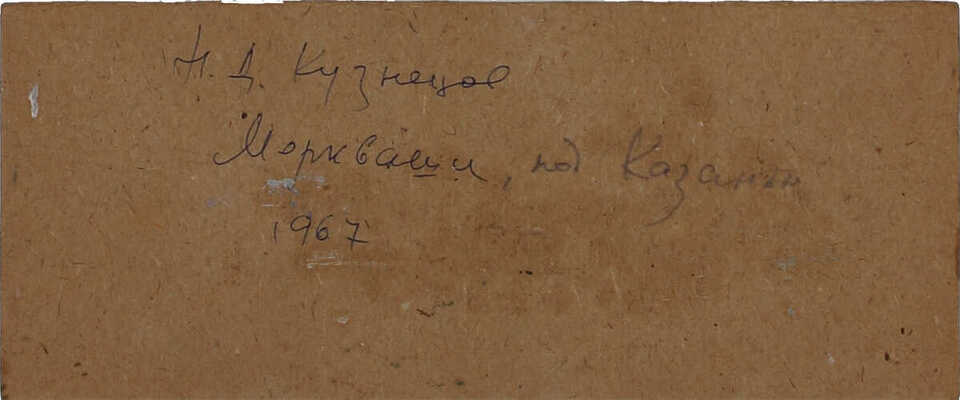 Н. Д. Кузнецов
Моркваши, под Казанью
1967